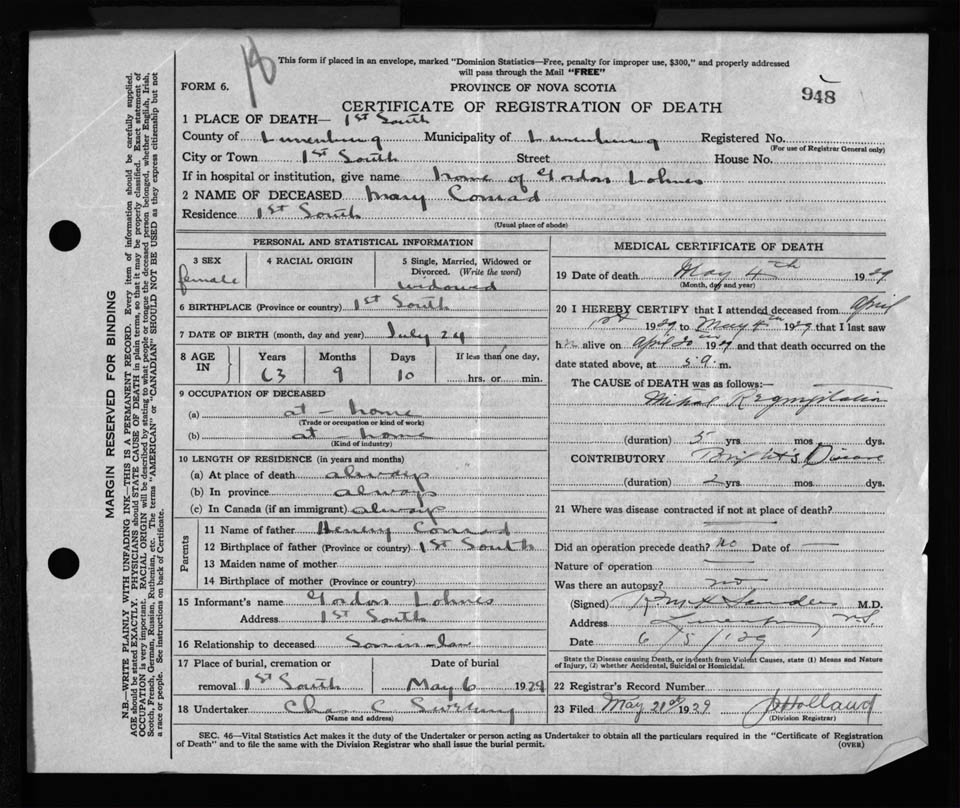 18
This form if placed in an envelope, marked "Dominion Statistics—Free, penalty for improper use, $300," and properly addressed
will pass through the Mail "FREE"
FORM 6.
PROVINCE OF NOVA SCOTIA
948
CERTIFICATE OF REGISTRATION OF DEATH
1 PLACE OF DEATH— 1st South
County of Lunenburg Municipality of Lunenburg Registered No.
(For use of Registrar General only)
City or Town 1st South Street House No.
If in hospital or institution, give name home of Gordon Lohnes
2 NAME OF DECEASED Mary Conrad
Residence 1st South
(Usual place of abode)
PERSONAL AND STATISTICAL INFORMATION
3 SEX
female
4 RACIAL ORIGIN
5 Single, Married, Widowed or
Divorced. (Write the word)
widowed
6 BIRTHPLACE (Province or country) 1st South
7 DATE OF BIRTH (month, day and year) July 24
8 AGE IN
Years Months Days If less than one day,
63 9 10 hrs. or min.
9 OCCUPATION OF DECEASED
(a) at - home
(Trade or occupation or kind of work)
(b) at - home
(Kind of industry)
10 LENGTH OF RESIDENCE (in years and months)
(a) At place of death always
(b) In province always
(c) In Canada (if an immigrant) always
Parents
11 Name of father Henery Conrad
12 Birthplace of father (Province or country) 1st South
13 Maiden name of mother
14 Birthplace of mother (Province or country)
15 Informant's name Gordon Lohnes
Address 1st South
16 Relationship to deceased Son-in-law
17 Place of burial, cremation or Date of burial
removal 1st South May 6 1929
18 Undertaker Chas C
(Name and address)
MEDICAL CERTIFICATE OF DEATH
19 Date of death May 4th 1929
(Month, day and year)
20 I HEREBY CERTIFY that I attended deceased from April
1st 1929 to May 4th 1929 that I last saw
her alive on April 30th 1929 and that death occurred on the
date stated above, at 5 a m.
The CAUSE of DEATH was as follows:—
Mitral Regurgitation
(duration) 5 yrs. mos. dys.
CONTRIBUTORY Bright's Disease
(duration) 2 yrs. mos. dys.
21 Where was disease contracted if not at place of death?
Did an operation precede death? no Date of —
Nature of operation —
Was there an autopsy? no
(Signed) Sanders M.D.
Address Lunenburg N.S.
Date 6/5/'29
State the Disease causing Death, or in death from Violent Causes, state (1) Means and Nature
of Injury, (2) whether Accidental, Suicidal or Homicidal.
22 Registrar's Record Number
23 Filed May 21st 1929 Holland
(Division Registrar)
SEC. 46—Vital Statistics Act makes it the duty of the Undertaker or person acting as Undertaker to obtain all the particulars required in the "Certificate of Registration
of Death" and to file the same with the Division Registrar who shall issue the burial permit.
(OVER)
MARGIN RESERVED FOR BINDING
N.B.—WRITE PLAINLY WITH UNFADING INK—THIS IS A PERMANENT RECORD. Every item of information should be carefully supplied.
AGE should be stated EXACTLY. PHYSICIANS should STATE CAUSE OF DEATH in plain terms, so that it may be properly classified. Exact statement of
OCCUPATION is very important. RACIAL ORIGIN will be described by stating to what people or tongue the deceased person belonged, whether English, Irish,
Scotch, French, German, Russian, Ruthenian, etc. The terms "AMERICAN" or "CANADIAN" SHOULD NOT BE USED as they express citizenship but not
a race or people. See instructions on back of Certificate.